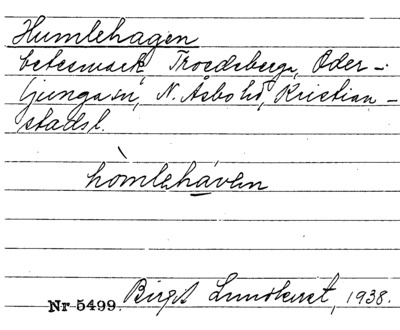 Humlehagen
betesmark, Troedsberga, Oder-
ljunga sn, N. Åsbo hd, Kristian-
stads l.
hòmlehá̱ven
Nr 5499. Birgit Lundkvist, 1938.